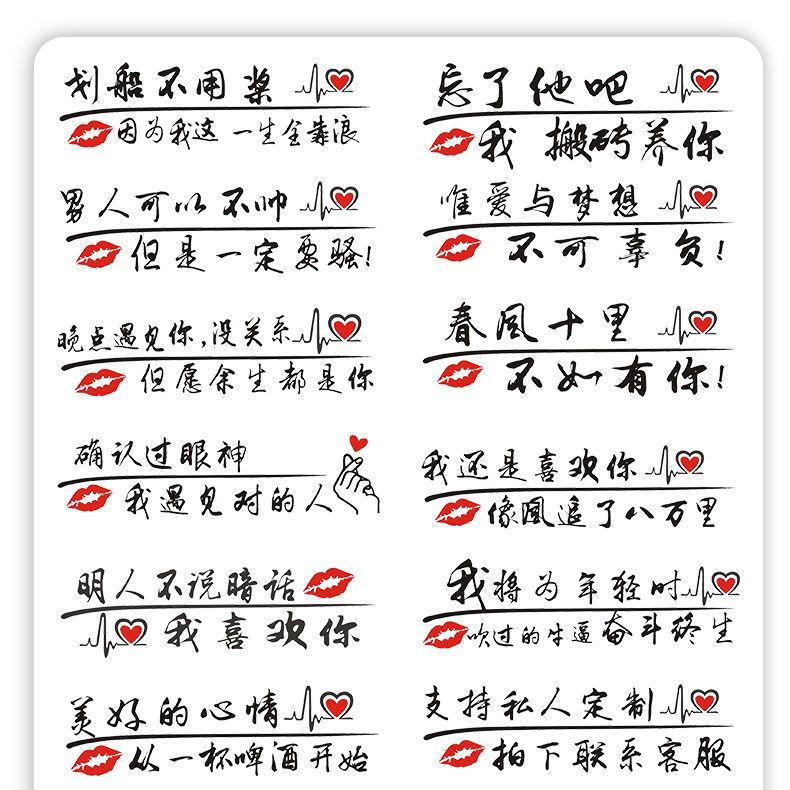 划船不用桨
因为我这一生全靠浪
男人可以不帅
但是一定要骚!
晚点遇见你,没关系
但愿余生都是你
确认过眼神
我遇见对的人
明人不说暗话
我喜欢你
美好的心情
从一杯啤酒开始
忘了他吧
我搬砖养你
唯爱与梦想
不可辜负!
春風十里
不如有你!
我还是喜欢你
像風追了八万里
我将为年轻时
吹过的牛逼奋斗终生
支持私人定制
拍下联系客服